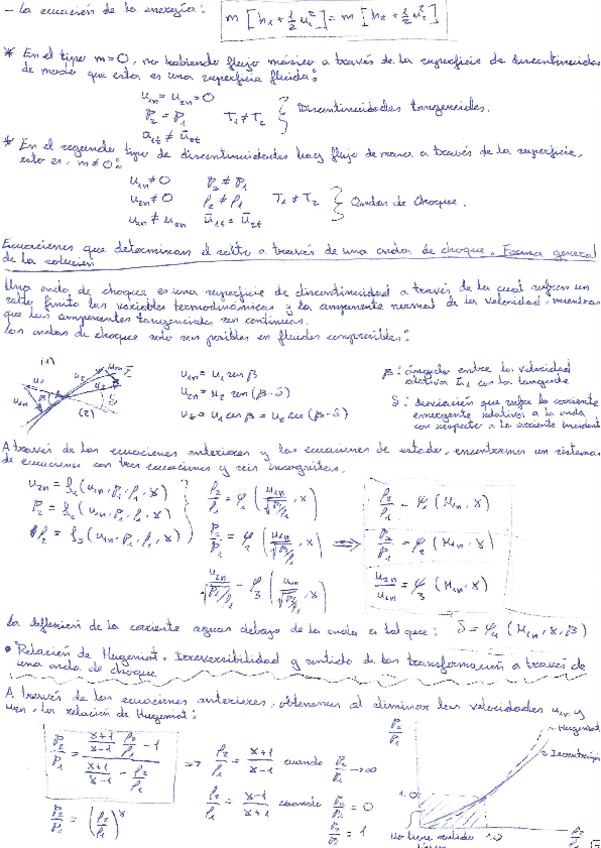 - La ecuación de la energía: m [h₁ + ½ u₁²] = m [h₂ + ½ u₂²]
* En el tipo m=0, no habiendo flujo másico a través de la superficie de discontinuidad
de modo que esta es una superficie fluida:
u₁ₙ = u₂ₙ = 0
P₂ = P₁ T₁ ≠ T₂ } Discontinuidades tangenciales.
ū₁t ≠ ū₂t
* En el segundo tipo de discontinuidades hay flujo de masa a través de la superficie,
esto es, m ≠ 0:
u₁ₙ ≠ 0 P₂ ≠ P₁
u₂ₙ ≠ 0 ρ₂ ≠ ρ₁ T₁ ≠ T₂ } Ondas de Choque.
u₁ₙ ≠ u₂ₙ ū₁t = ū₂t
Ecuaciones que determinan el salto a través de una onda de choque. Forma general
de la solución
Una onda de choque es una superficie de discontinuidad a través de la cual sufren un
salto finito las variables termodinámicas y la componente normal de la velocidad, mientras
que las componentes tangenciales son continuas.
Las ondas de choque solo son posibles en fluidos compresibles:
(1)
(2)
u₁ₙ = u₁ sen β
u₂ₙ = u₂ sen (β - δ)
ut = u₁ cos β = u₂ cos (β - δ)
β: ángulo entre la velocidad
relativa ū₁ con la tangente
δ: desviación que sufre la corriente
emergente relativa a la onda
con respecto a la corriente incidente
A través de las ecuaciones anteriores y las ecuaciones de estado, encontramos un sistema
de ecuaciones con tres ecuaciones y seis incógnitas.
u₂ₙ = f₁ (u₁ₙ, P₁, ρ₁, γ)
P₂ = f₂ (u₁ₙ, P₁, ρ₁, γ)
ρ₂ = f₃ (u₁ₙ, P₁, ρ₁, γ)
ρ₂/ρ₁ = φ₁ (u₁ₙ/√(P₁/ρ₁), γ)
P₂/P₁ = φ₂ (u₁ₙ/√(P₁/ρ₁), γ) ⟹
u₂ₙ/√(P₁/ρ₁) = φ₃ (u₁ₙ/√(P₁/ρ₁), γ)
ρ₂/ρ₁ = ψ₁ (M₁ₙ, γ)
P₂/P₁ = ψ₂ (M₁ₙ, γ)
u₂ₙ/u₁ₙ = ψ₃ (M₁ₙ, γ)
La deflexión de la corriente aguas debajo de la onda es tal que: δ = ψ₄ (M₁ₙ, γ, β)
• Relación de Hugoniot. Irreversibilidad y sentido de las transformación a través de
una onda de choque
A través de las ecuaciones anteriores, obtenemos al eliminar las velocidades u₁ₙ y
u₂ₙ, la relación de Hugoniot:
P₂/P₁ = ((γ+1)/(γ-1) ρ₂/ρ₁ - 1) / ((γ+1)/(γ-1) - ρ₂/ρ₁)
⇒ ρ₂/ρ₁ = (γ+1)/(γ-1) cuando P₂/P₁ → ∞
ρ₂/ρ₁ = (γ-1)/(γ+1) cuando P₂/P₁ = 0
P₂/P₁ = (ρ₂/ρ₁)^γ
P₂/P₁ = 1
P₂/P₁
Hugoniot
Isentrópica
1.0
No tiene sentido
1.0
ρ₂/ρ₁